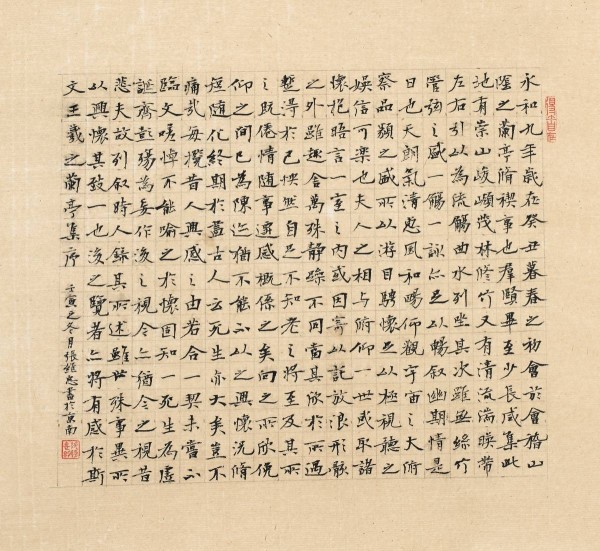 永和九年歲在癸丑暮春之初會於會稽山
陰之蘭亭脩禊事也羣賢畢至少長咸集此
地有崇山峻嶺茂林修竹又有清流湍暎帶
左右引以為流觴曲水列坐其次雖無絲竹
管弦之盛一觴一詠亦足以暢叙幽期情是
日也天朗氣清惠風和暢仰觀宇宙之大俯
察品類之盛所以游目騁懷足以極視聽之
娛信可樂也夫人之相與俯仰一世或取諸
懷抱晤言一室之內或因寄以託放浪形骸
之外雖趣舍萬殊靜躁不同當其欣於所遇
蹔得於己怏然自足不知老之將至及其所
之既倦情隨事遷感概係之矣向之所欣俛
仰之間已為陳迹猶不能不以之興懷況脩
短隨化終期於盡古人云死生亦大矣豈不
痛哉每攬昔人興感之由若合一契未嘗不
臨文嗟悼不能喻之於懷固知一死生為虛
誕齊彭殤為妄作後之視今亦猶今之視昔
悲夫故列叙時人錄其所述雖世殊事異所
以興懷其致一也後之覽者亦將有感於斯
文王羲之蘭亭集序
壬寅之冬月張繼忠書於京南